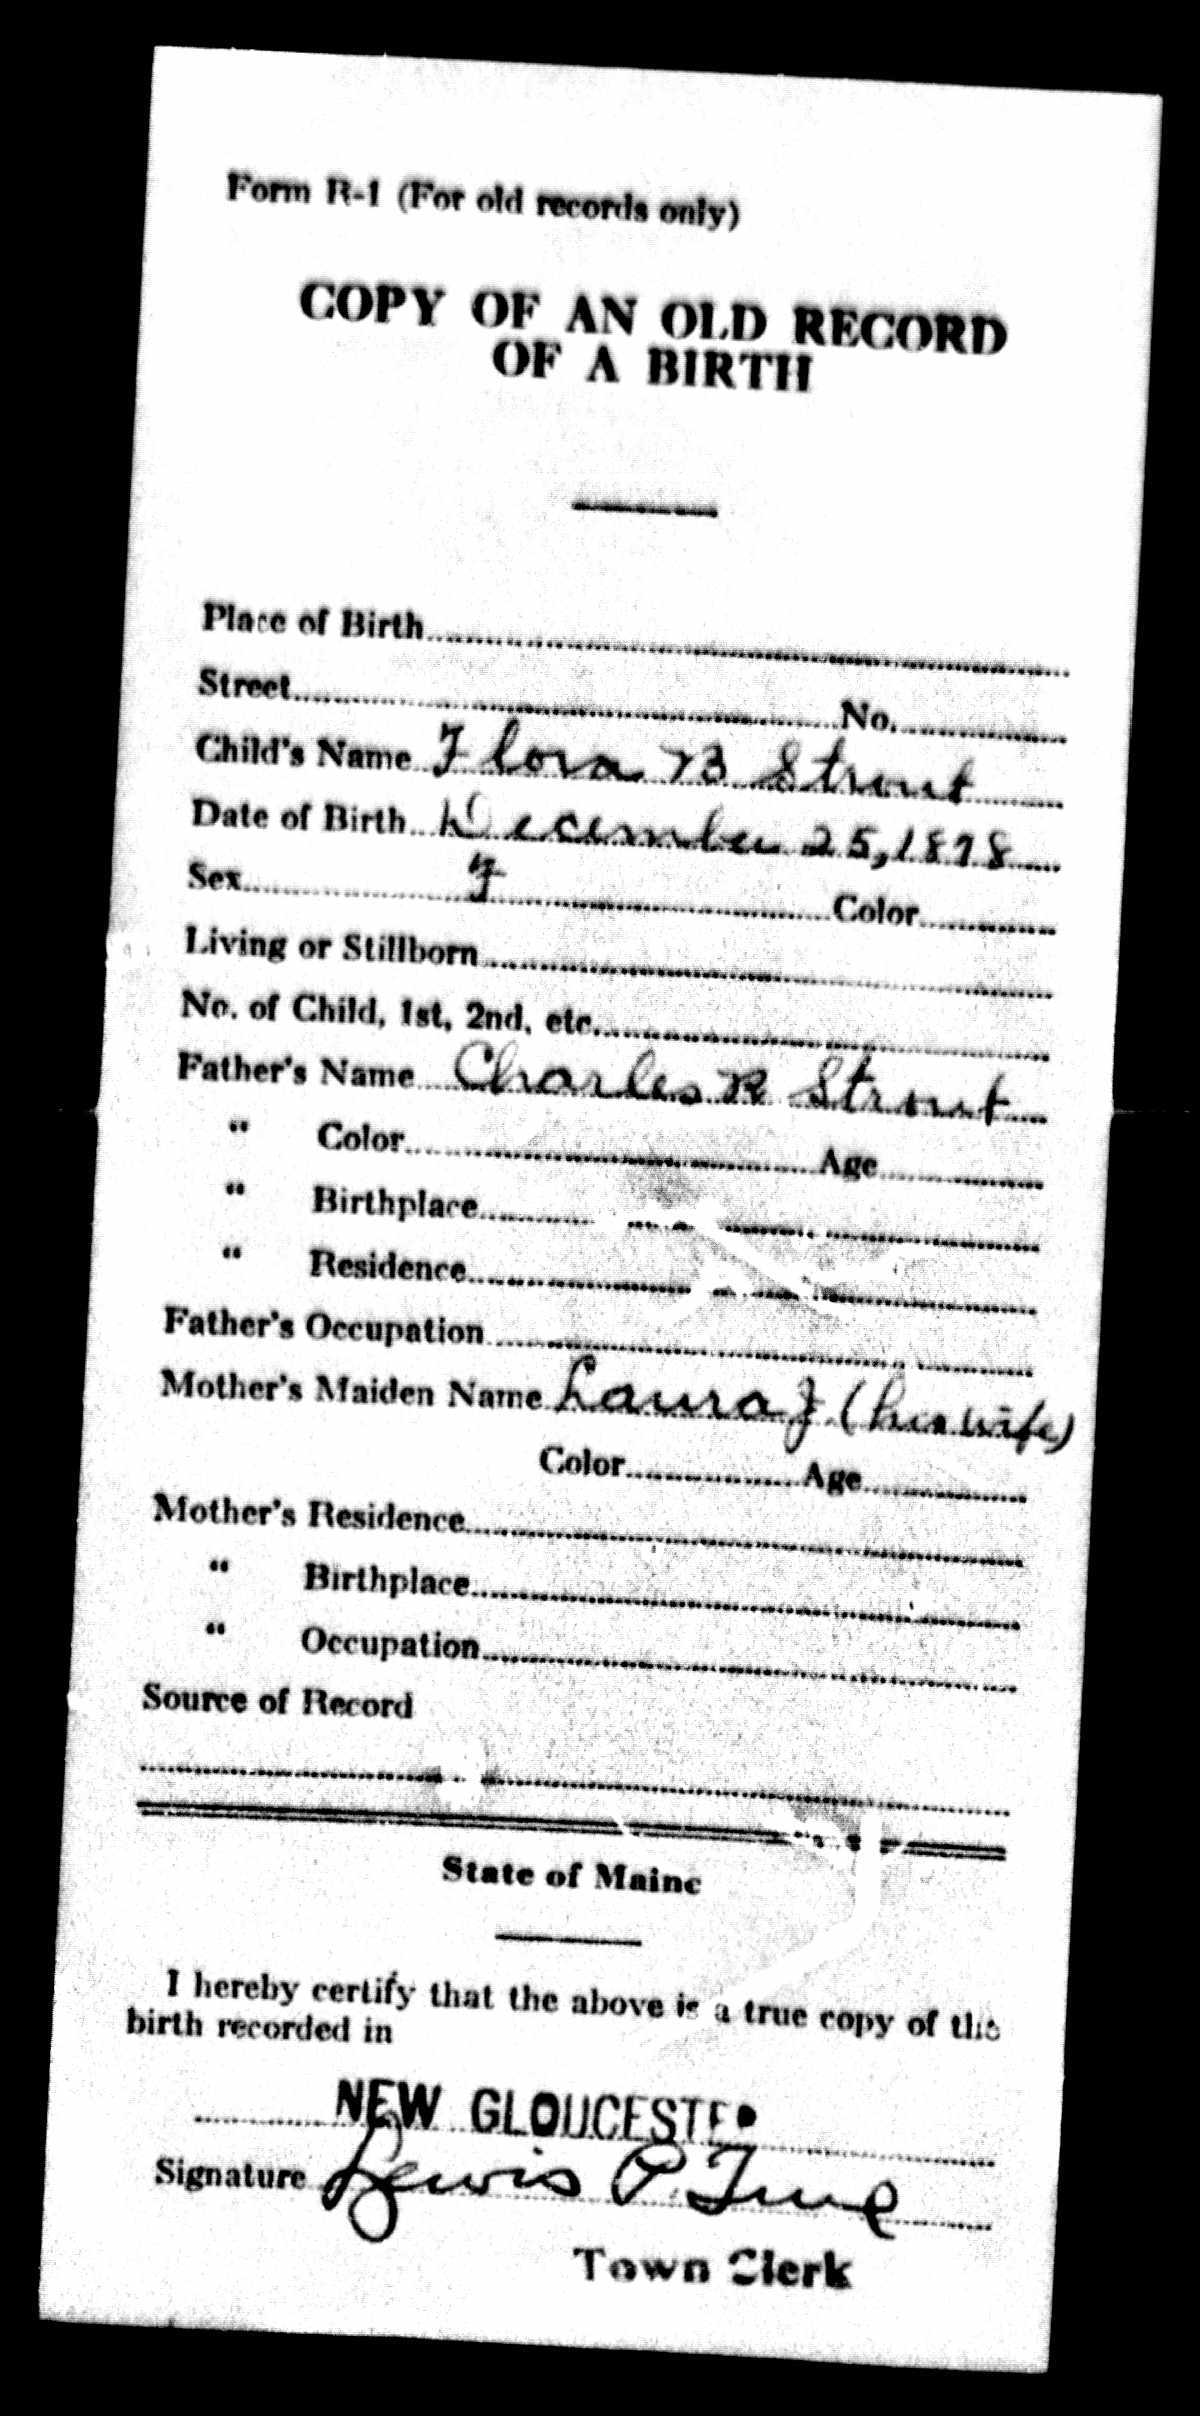 Form R-1 (For old records only)
COPY OF AN OLD RECORD
OF A BIRTH
Place of Birth
Street No.
Child's Name Flora B Strout
Date of Birth December 25, 1878
Sex F Color
Living or Stillborn
No. of Child, 1st, 2nd, etc.
Father's Name Charles R Strout
" Color Age
" Birthplace
" Residence
Father's Occupation
Mother's Maiden Name Laura J (his wife)
Color Age
Mother's Residence
" Birthplace
" Occupation
Source of Record
State of Maine
I hereby certify that the above is a true copy of the
birth recorded in
NEW GLOUCESTER
Signature Lewis P. True
Town Clerk